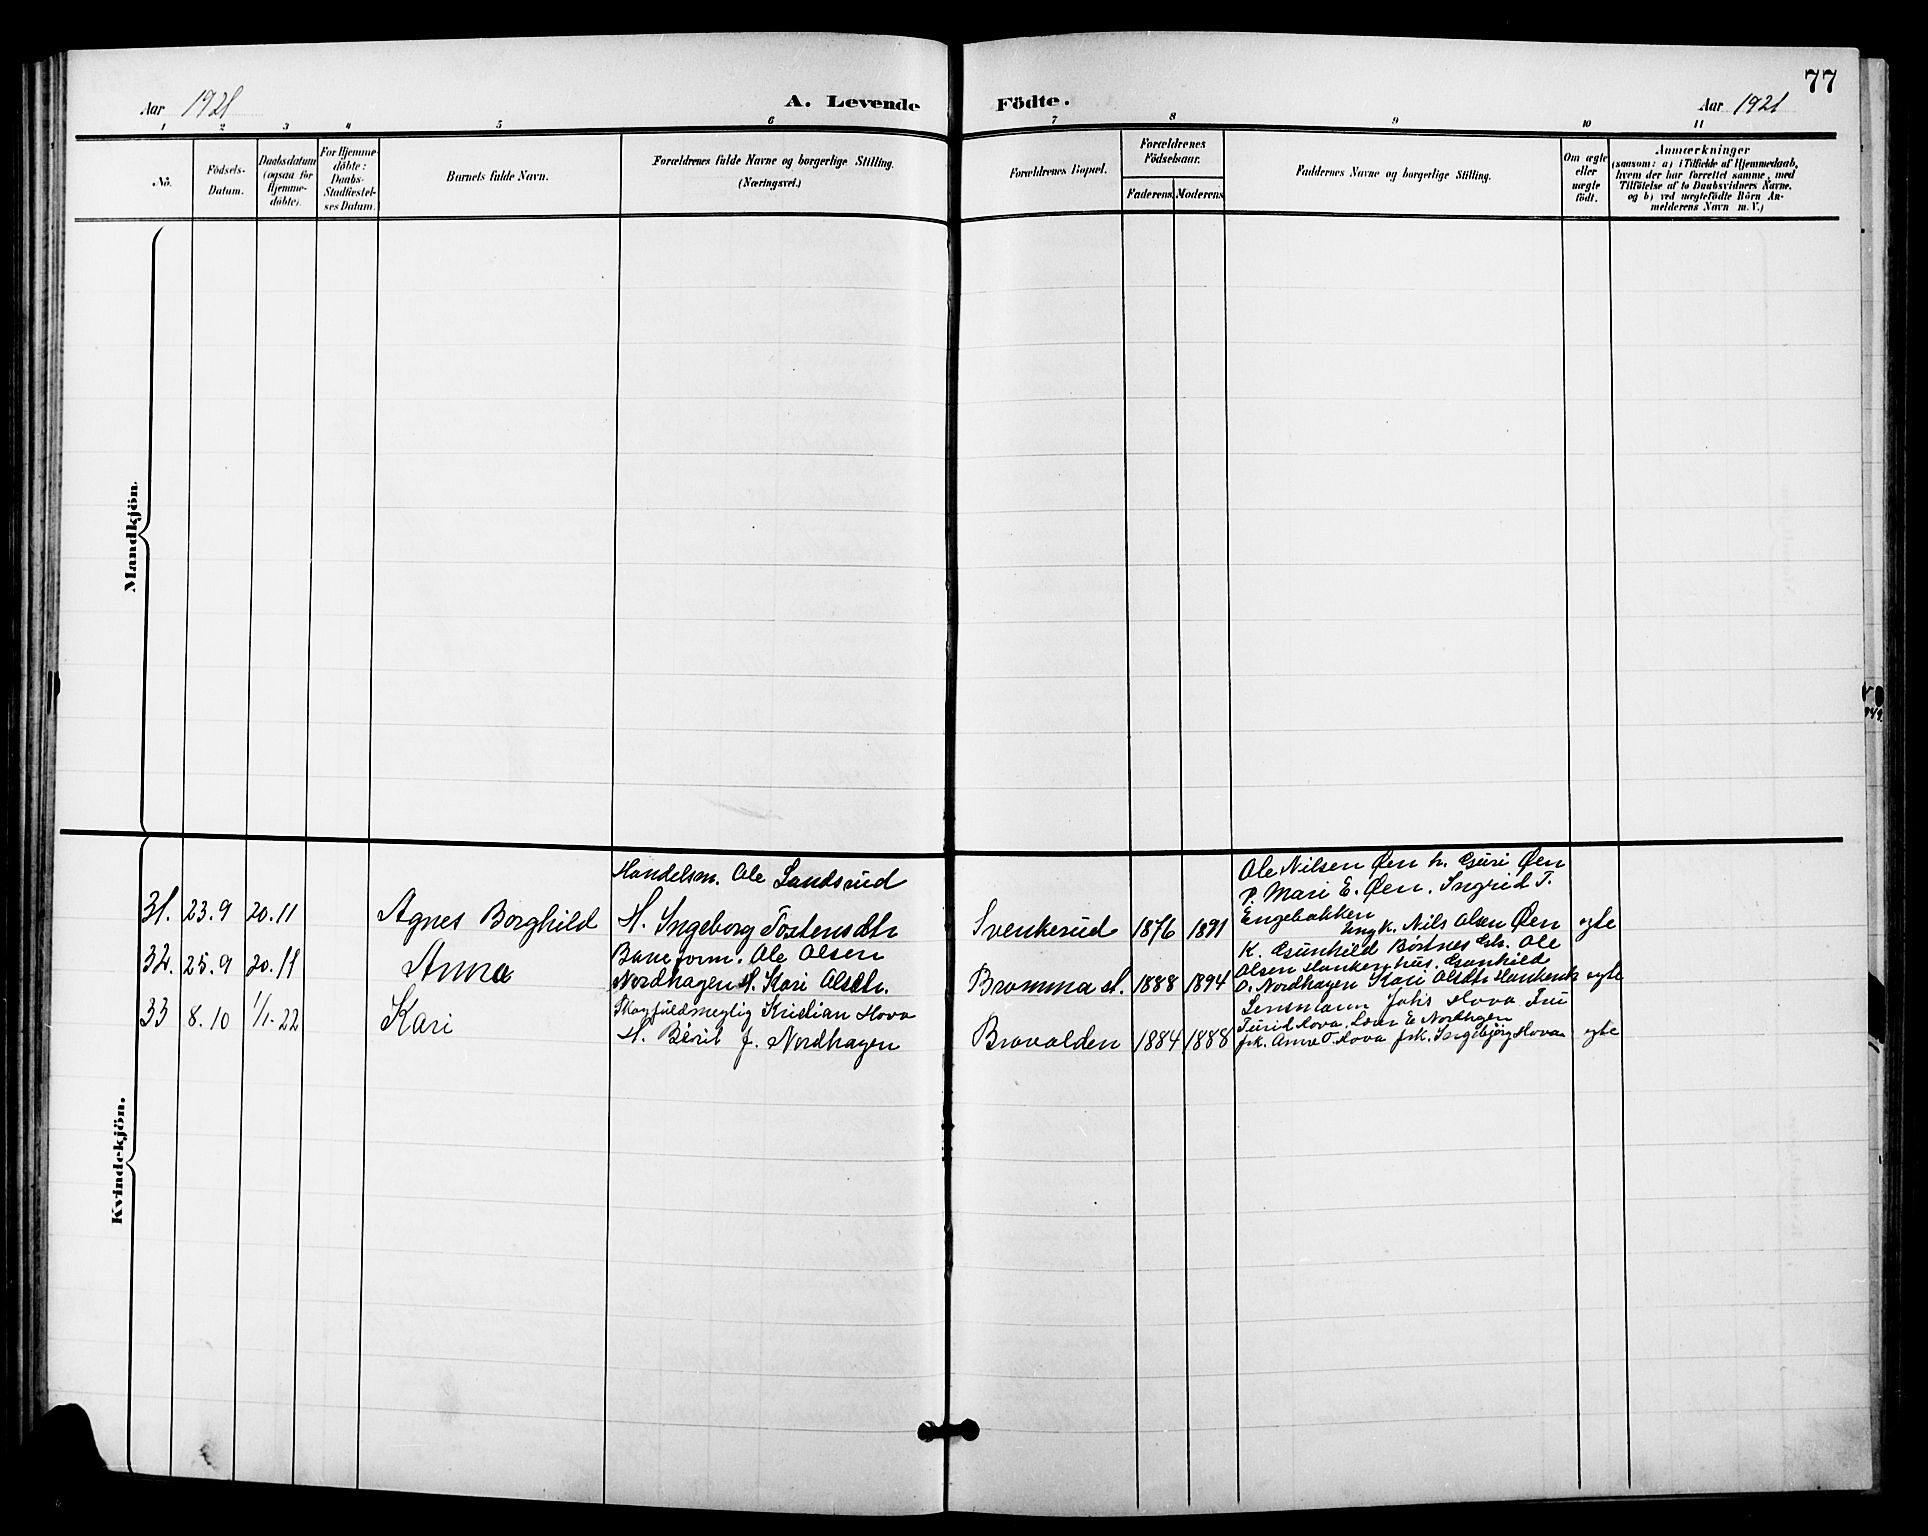 77
Aar 1921
A. Levende Födte.
Aar 1921
1 2 3 4 5 6 7 8 9 10 11
No.
Födsels-Datum.
Daabsdatum (ogsaa for Hjemme-döbte).
For Hjemme-döbte: Daabs-Stadfæstel-ses Datum.
Barnets fulde Navn.
Forældrenes fulde Navne og borgerlige Stilling.
(Næringsvei.)
Forældrenes Bopæl.
Forældrenes Födselsaar.
Faderens. Moderens.
Faddernes Navne og borgerlige Stilling.
Om ægte eller uægte födt.
Anmærkninger
(saasom: a) i Tilfælde af Hjemmedaab,
hvem der har forrettet samme, med
Tilføielse af to Daabsvidners Navne,
og b) ved uægtefödte Börn An-
melderens Navn m. V.)
Mandkjön.
Kvindekjön.
31. 23.9 20.11 Agnes Borghild
Handelsm. Ole Sandsrud
H. Ingeborg Tostensdtr
Svenkerud 1876 1891
Ole Nilsen Øen h. Guri Øen
P. Mari E. Øen. Ingrid T.
Engebakken
Ungk. Nils Olsen Øen
egte
32. 25.9 20.11 Anna
Baneform. Ole Olsen
Nordhagen H. Kari Olsdtr.
Bromma st. 1888 1894
K. Gunhild Børtnes Gbr. Ole
Olsen Haukenhus. Gunhild
O. Nordhagen Kari Olsdtr
egte
33 8.10 1/1-22 Kari
Kristian Hova
H. Berit f. Nordhagen
Bravalden 1884 1888
Lensmann Hova Fru
Turid Hova. E Nordhagen
frk. Anne T. Hova frk. Ingebjørg Hova
egte